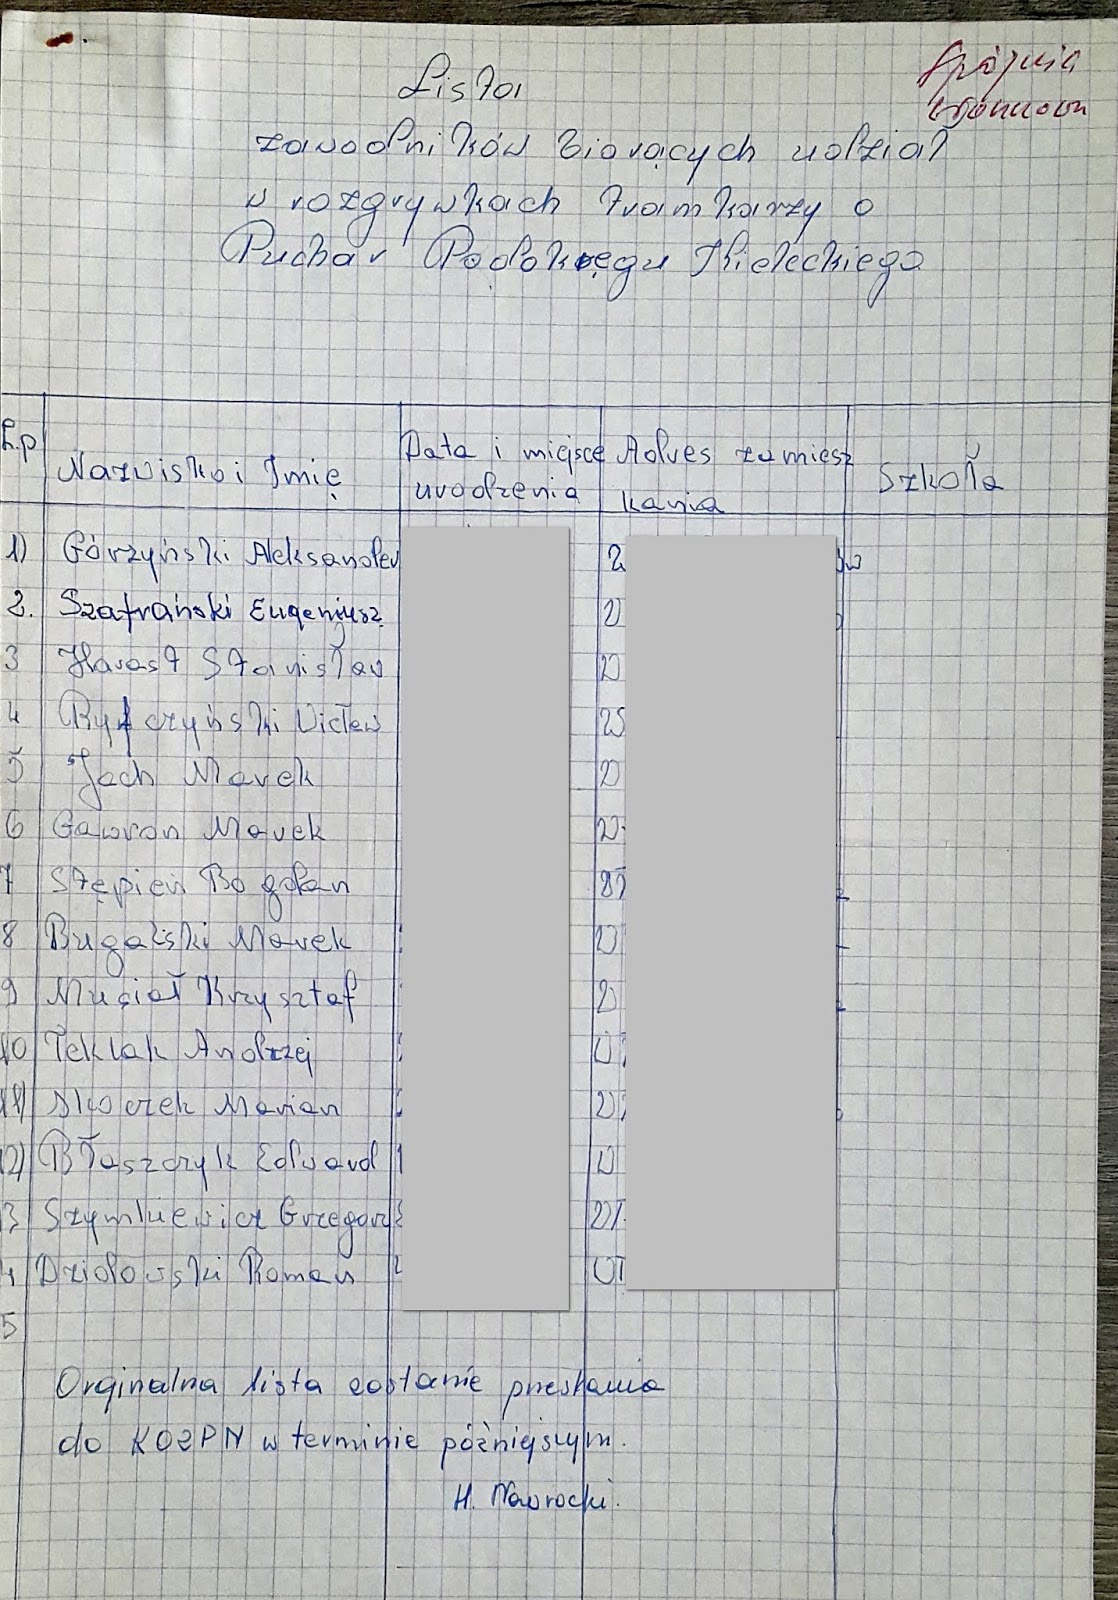 Lista
zawodników biorących udział
w rozgrywkach tramkarzy o
Puchar Podokręgu Kieleckiego
L.p Nazwisko i Imię Data i miejsce urodzenia Adres zamiesz kania Szkoła
1) Górzyński Aleksander
2. Szafrański Eugeniusz
3 Harast Stanisław
4 Wiesław
5 Jach Marek
6 Gawron Marek
7 Stępień Bogdan
8 Bugalski Marek
9 Musiał Krzysztof
10 Teklak Andrzej
11) Skorek Marian
12) Błaszczyk Edward
13 Szymkiewicz Grzegorz
Dzidowski Roman
5
Orginalna lista zostanie przesłania
do KOZPN w terminie późniejszym.
H. Nawrocki.